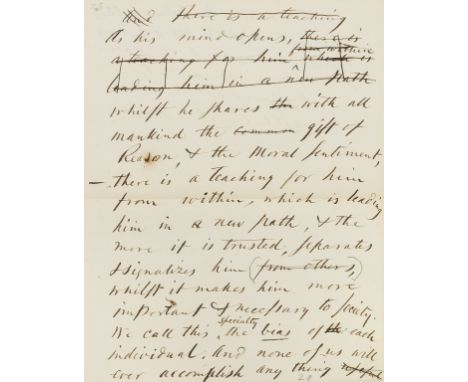 And there is a teaching
As his mind opens, there is
from within
a teaching for him which is
leading him in a new path
whilst he shares the with all
mankind the common gift of
Reason, & the Moral Sentiment,
— there is a teaching for him
from within, which is leading
him in a new path, & the
more it is trusted, separates
& signalizes him (from others,)
whilst it makes him more
important & necessary to society.
specialty
We call this, the bias of the each
individual. And none of us will
ever accomplish any thing useful
28